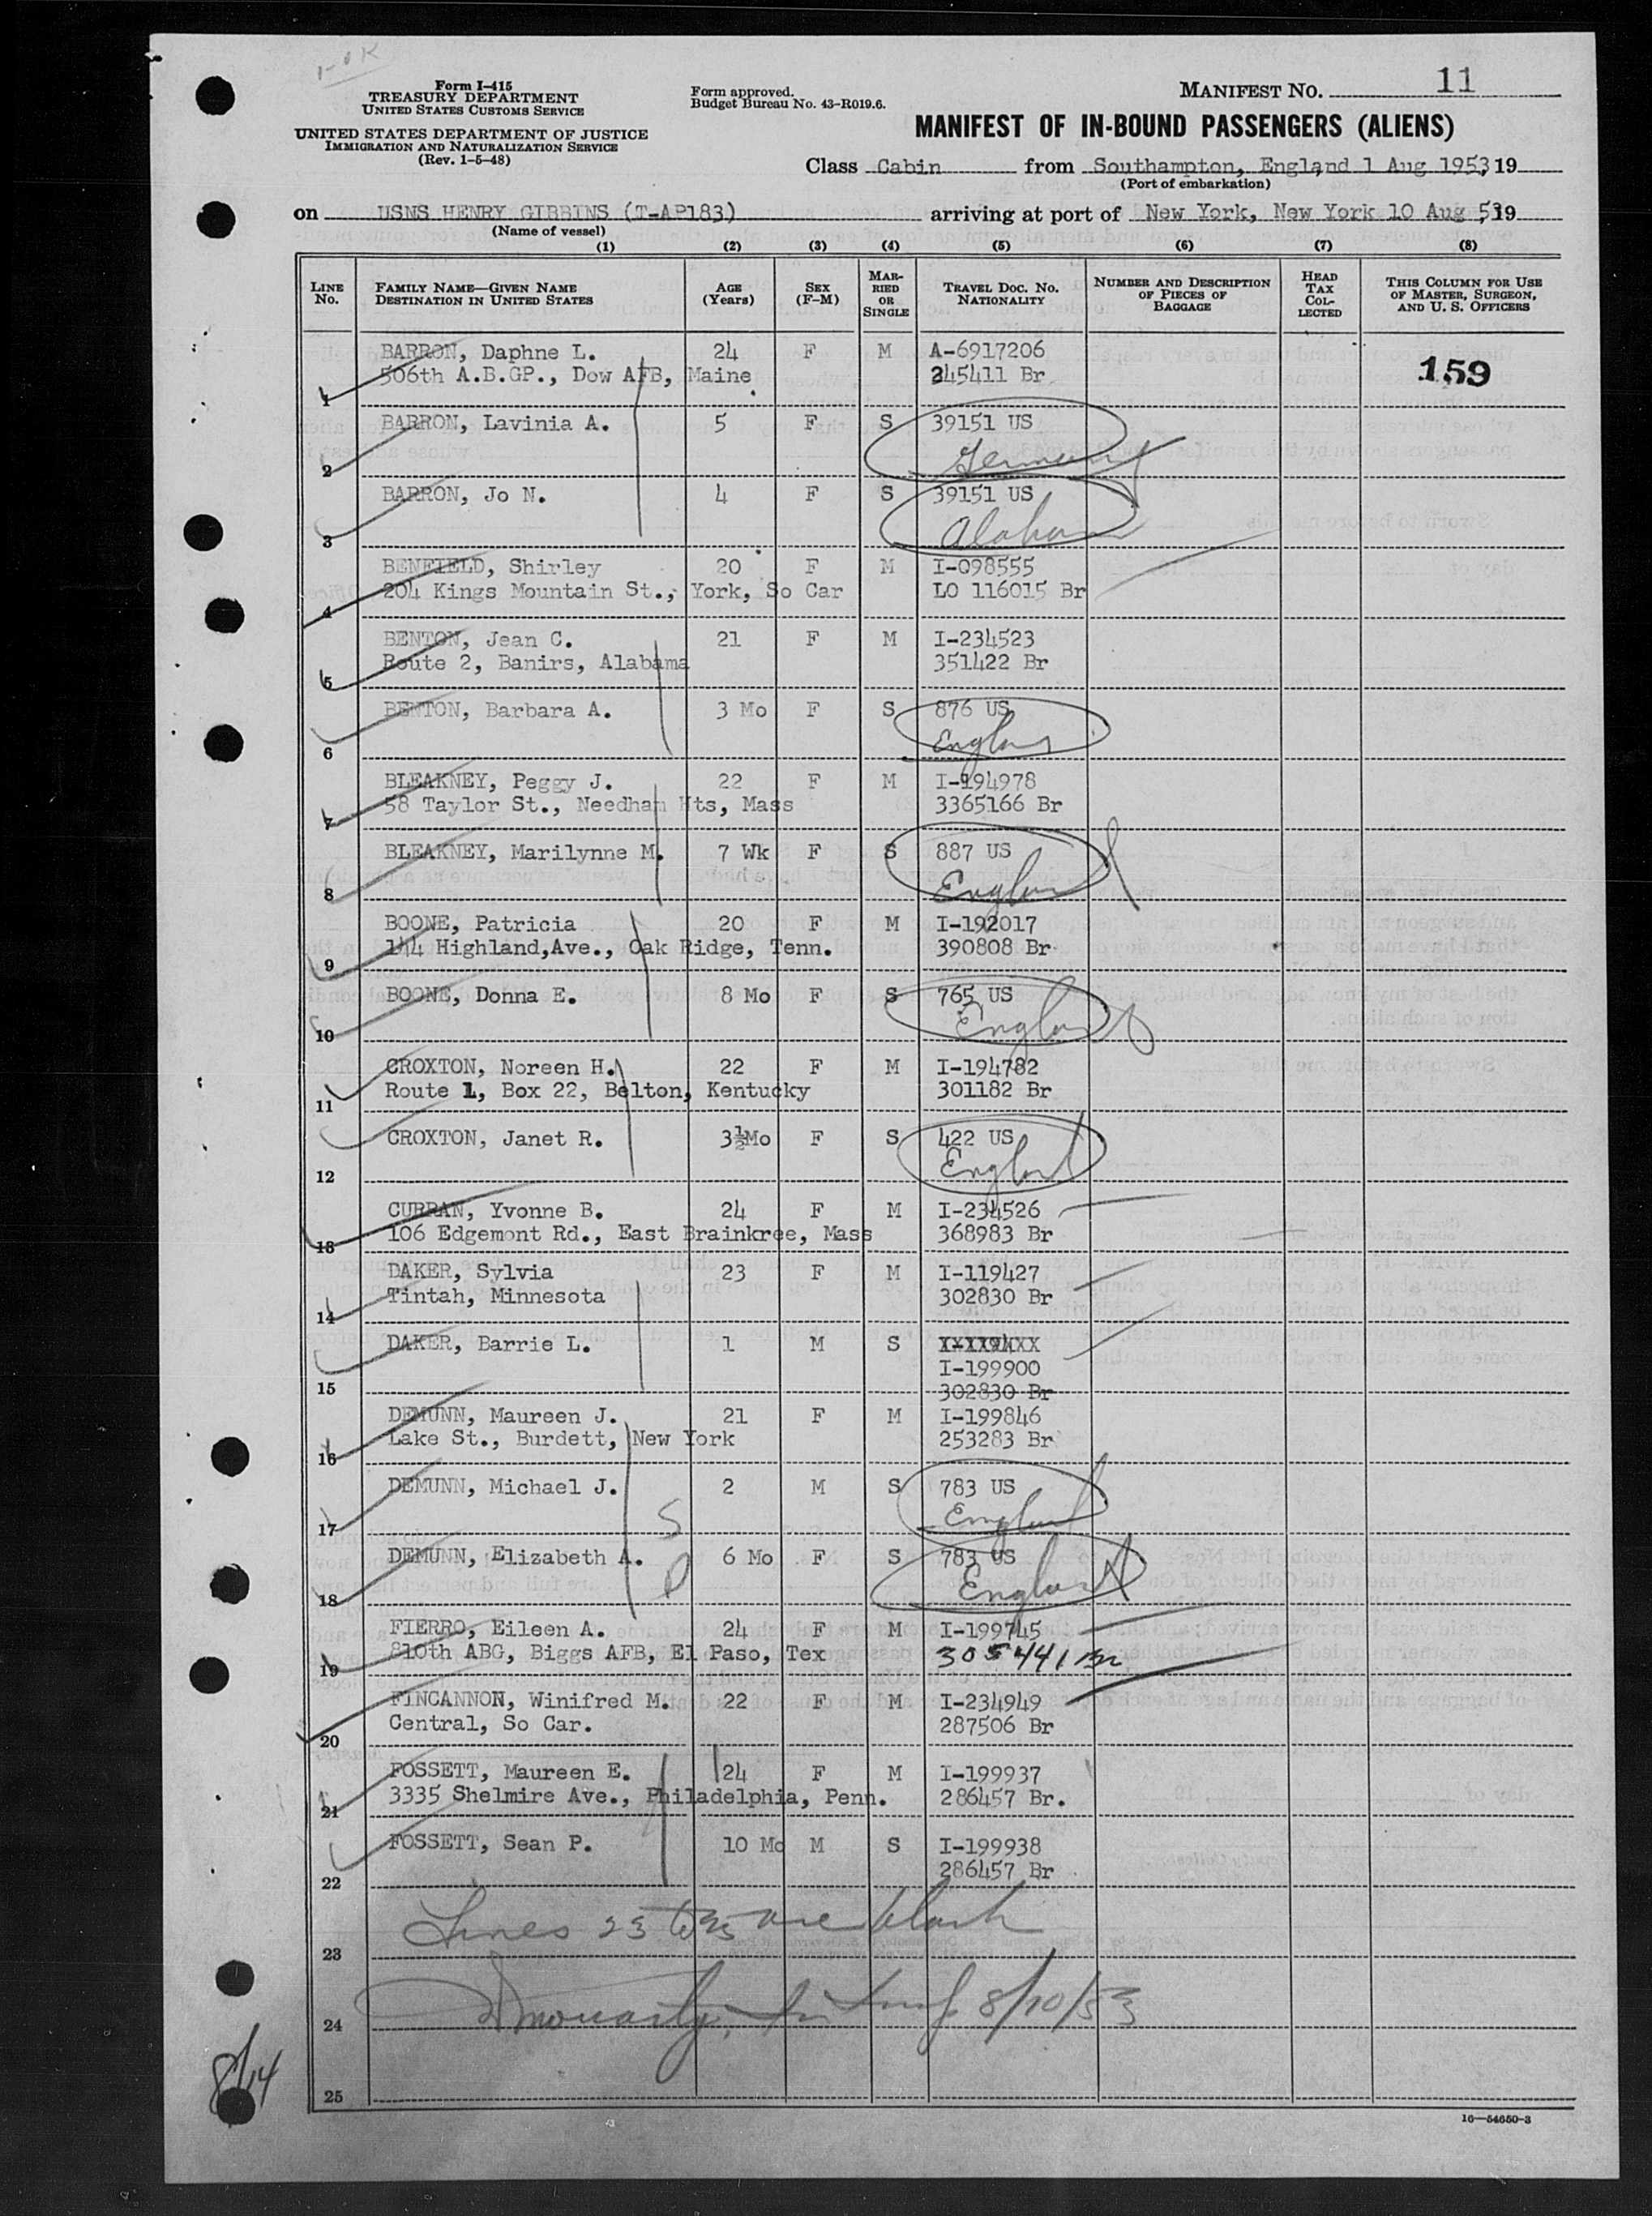 1-OK
Form I-415
TREASURY DEPARTMENT
UNITED STATES CUSTOMS SERVICE
UNITED STATES DEPARTMENT OF JUSTICE
IMMIGRATION AND NATURALIZATION SERVICE
(Rev. 1-5-48)
Form approved.
Budget Bureau No. 43-R019.6.
MANIFEST NO. 11
MANIFEST OF IN-BOUND PASSENGERS (ALIENS)
Class Cabin from Southampton, England 1 Aug 1953, 19
(Port of embarkation)
on USNS HENRY GIBBINS (T-AP183) arriving at port of New York, New York 10 Aug 53, 19
(Name of vessel)
(1) (2) (3) (4) (5) (6) (7) (8)
LINE No. FAMILY NAME—GIVEN NAME DESTINATION IN UNITED STATES AGE (Years) SEX (F-M) MARRIED OR SINGLE TRAVEL DOC. NO. NATIONALITY NUMBER AND DESCRIPTION OF PIECES OF BAGGAGE HEAD TAX COLLECTED THIS COLUMN FOR USE OF MASTER, SURGEON, AND U. S. OFFICERS
BARRON, Daphne L. 24 F M A-6917206
506th A.B.GP., Dow AFB, Maine 245411 Br. 159
1
BARRON, Lavinia A. 5 F S 39151 US
2 Germany
BARRON, Jo N. 4 F S 39151 US
3 Alabam
BENFIELD, Shirley 20 F M I-098555
204 Kings Mountain St., York, So Car LO 116015 Br
4
BENTON, Jean C. 21 F M I-234523
Route 2, Banirs, Alabama 351422 Br
5
BENTON, Barbara A. 3 Mo F S 876 US
6 England
BLEAKNEY, Peggy J. 22 F M I-194978
58 Taylor St., Needham Hts, Mass 3365166 Br
7
BLEAKNEY, Marilynne M. 7 Wk F S 887 US
8 England
BOONE, Patricia 20 F M I-192017
144 Highland,Ave., Oak Ridge, Tenn. 390808 Br
9
BOONE, Donna E. 8 Mo F S 765 US
10 England
CROXTON, Noreen H. 22 F M I-194782
Route 1, Box 22, Belton, Kentucky 301182 Br
11
CROXTON, Janet R. 3½Mo F S 422 US
12 England
CURRAN, Yvonne B. 24 F M I-234526
106 Edgemont Rd., East Brainkree, Mass 368983 Br
13
DAKER, Sylvia 23 F M I-119427
Tintah, Minnesota 302830 Br
14
DAKER, Barrie L. 1 M S
I-199900
15 302830 Br
DEMUNN, Maureen J. 21 F M I-199846
Lake St., Burdett, New York 253283 Br
16
DEMUNN, Michael J. 2 M S 783 US
17 England
DEMUNN, Elizabeth A. 6 Mo F S 783 US
18 England
FIERRO, Eileen A. 24 F M I-199745
810th ABG, Biggs AFB, El Paso, Tex 305441 Br
19
FINCANNON, Winifred M. 22 F M I-234949
Central, So Car. 287506 Br
20
FOSSETT, Maureen E. 24 F M I-199937
3335 Shelmire Ave., Philadelphia, Penn. 286457 Br.
21
FOSSETT, Sean P. 10 Mo M S I-199938
22 286457 Br
Lines 23 to 25 are blank
23
8/10/53
24
25
8/14
16—54650-3